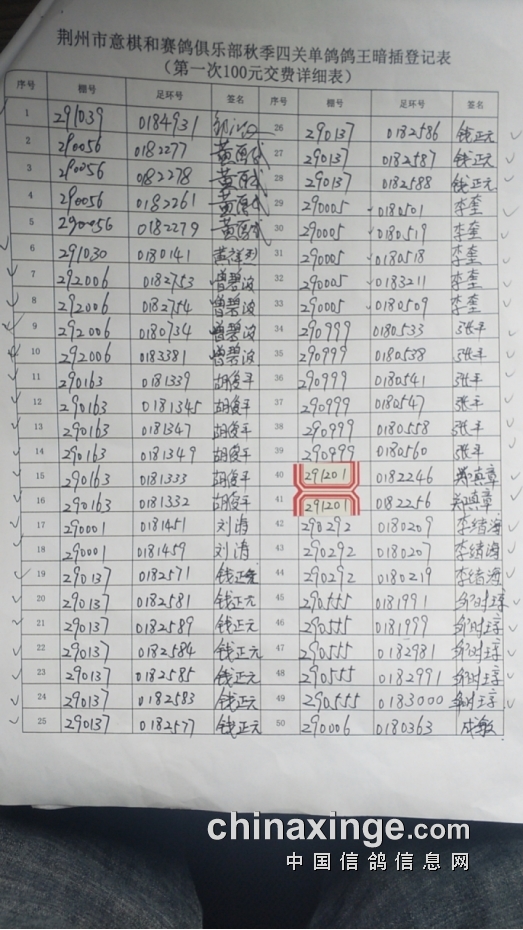 荆州市意棋和赛鸽俱乐部秋季四关单鸽鸽王暗插登记表
（第一次100元交费详细表）
序号 棚号 足环号 签名 序号 棚号 足环号 签名
1 291039 0184931 26 290137 0182586 钱正元
2 290056 0182277 27 290137 0182587 钱正元
3 290056 0182278 28 290137 0182588 钱正元
4 290056 0182261 29 290005 0180501 李奎
5 290056 0182279 30 290005 0180519 李奎
6 291030 0180141 31 290005 0180518 李奎
7 292006 0182753 曾碧波 32 290005 0183211 李奎
8 292006 0182754 曾碧波 33 290005 0180509 李奎
9 292006 0180734 曾碧波 34 290999 0180533 张平
10 292006 0183381 曾碧波 35 290999 0180538 张平
11 290163 0181339 胡俊平 36 290999 0180541 张平
12 290163 0181345 胡俊平 37 290999 0180547 张平
13 290163 0181347 胡俊平 38 290999 0180558 张平
14 290163 0181349 胡俊平 39 290999 0180560 张平
15 290163 0181333 胡俊平 40 291201 0182246 郑真章
16 290163 0181332 胡俊平 41 291201 0182256 郑真章
17 290001 0181451 刘涛 42 290292 0180209 李绪海
18 290001 0181459 刘涛 43 290292 0180207 李绪海
19 290137 0182571 钱正元 44 290292 0180219 李绪海
20 290137 0182581 钱正元 45 290555 0181991
21 290137 0182589 钱正元 46 290555 0181999
22 290137 0182584 钱正元 47 290555 0182981
23 290137 0182585 钱正元 48 290555 0182991
24 290137 0182583 钱正元 49 290555 0183000
25 290137 0182577 钱正元 50 290006 0180363 成敏
chinaxinge.com
中国信鸽信息网